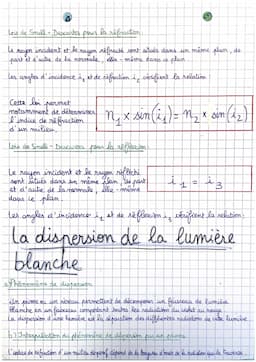 Lois de Snell - Descartes pour la réfraction:
Le rayon incident et le rayon réfracté sont situés dans un même plan, de
part et d'autre de la normale, elle-même dans ce plan
Les angles d'incidence i₁ et de réfraction i₂ vérifient la relation:
Cette loi permet
notamment de déterminer
l'indice de réfraction
d'un milieu.
n₁ × sin(i₁) = n₂ × sin(i₂)
Lois de Snell - Descartes pour la réflexion:
Le rayon incident et le rayon réfléchi
sont situés dans un même plan, de part
et d'autre de la normale, elle-même
dans ce plan.
i₁ = i₃
Les angles d'incidence i₁ et de réflexion i₃ vérifient la relation:
La dispersion de la lumière
blanche
a) Phénomène de dispersion
Un prisme en verre permet de décomposer un faisceau de lumière
blanche en un faisceau comportant toutes les radiations du violet au rouge
La dispersion d'une lumière est la séparation des différentes radiations de cette lumière
b) Interprétation du phénomène de dispersion par un prisme
L'indice de réfraction d'un milieu dépend de la